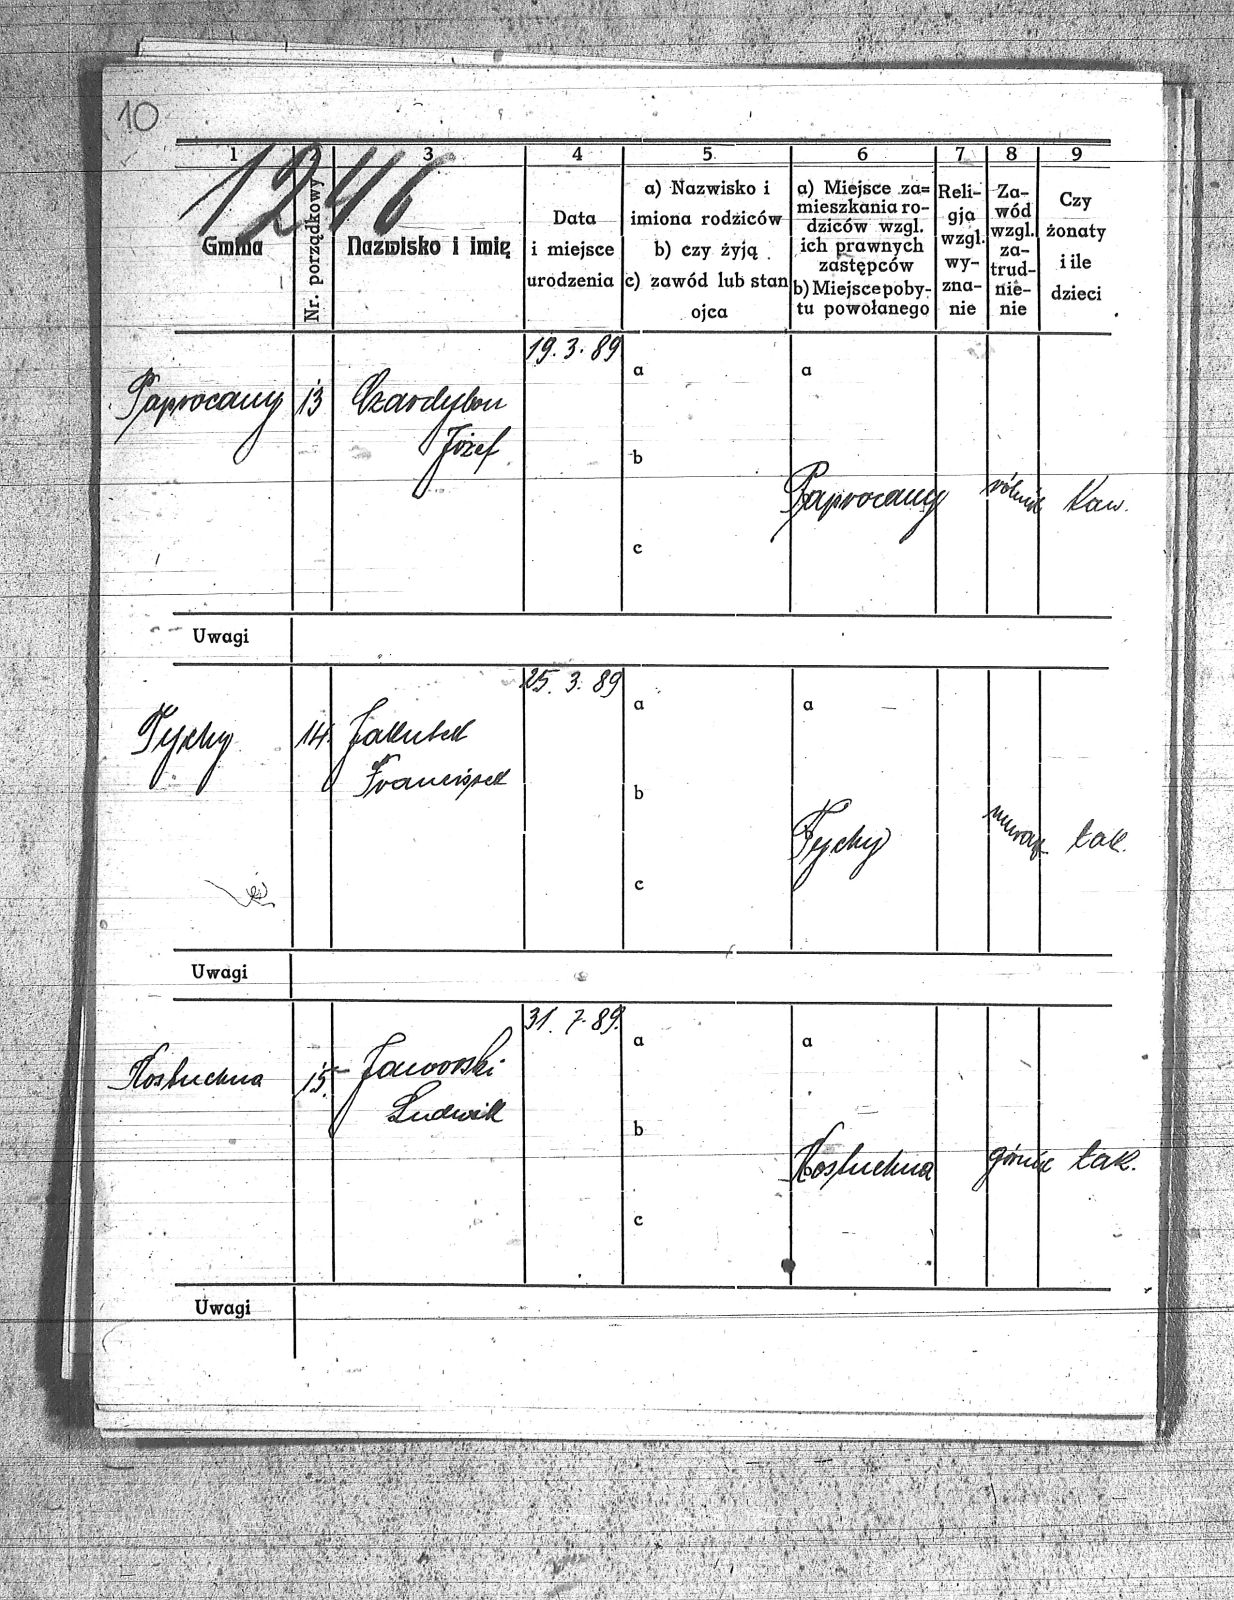 10
1246
1 2 3 4 5 6 7 8 9
Gmina
Nr. porządkowy
Nazwisko i imię
Data
i miejsce
urodzenia
a) Nazwisko i
imiona rodziców
b) czy żyją
c) zawód lub stan
ojca
a) Miejsce za=
mieszkania ro-
dziców wzgl.
ich prawnych
zastępców
b) Miejsce poby-
tu powołanego
Reli-
gja
wzgl.
wy-
zna-
nie
Za-
wód
wzgl.
za-
trud-
nie-
nie
Czy
żonaty
i ile
dzieci
19.3.89
a
a
Paprocany 13 Czardybon
Józef
b
Paprocany rólnik kaw.
c
Uwagi
25.3.89
a
a
Tychy 14. Jakubek
Franciszek
b
Tychy murarz tak.
c
Uwagi
31.7.89.
a
a
Kostuchna 15. Jaworski
Ludwik
b
Kostuchna górnik tak.
c
Uwagi